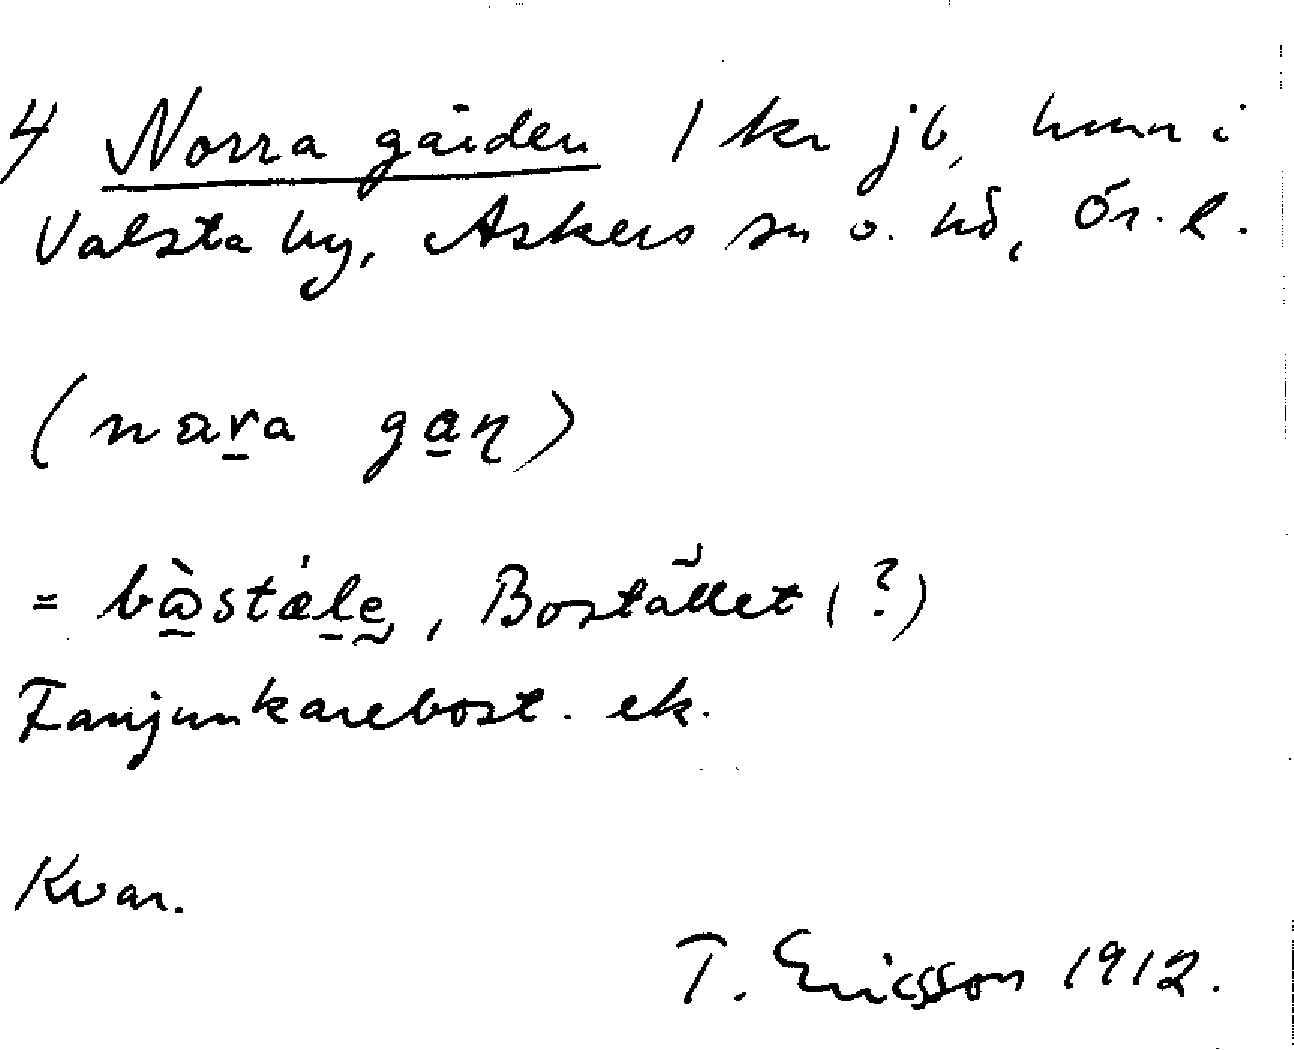 4 Norra gården 1 kr jb, hmn i
Valsta by, Askers sn o. hd, Ör. l.
(nara gaɳ)
= bòstäle, Bostället (?)
Fanjunkarebost. ek.
Kvar.
T. Ericsson 1912.